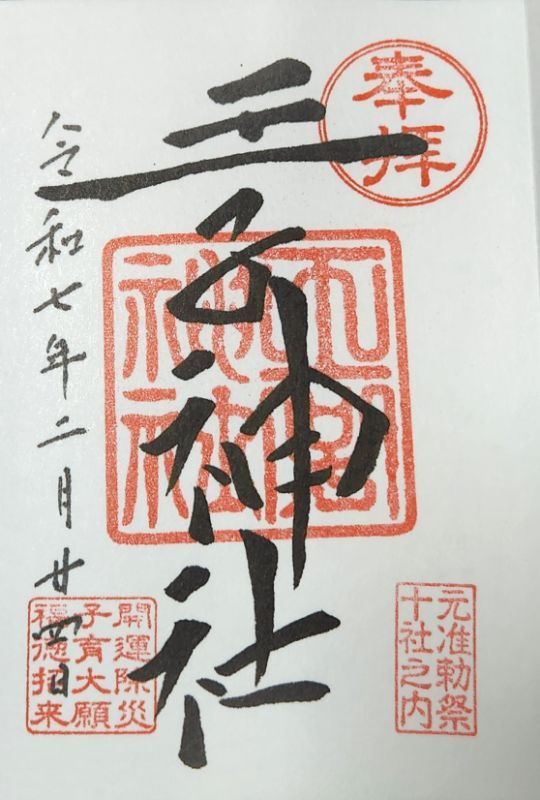 奉拝
元准勅祭
十社之内
王子神社
令和七年二月廿四日
開運除災
子育大願
福徳招来